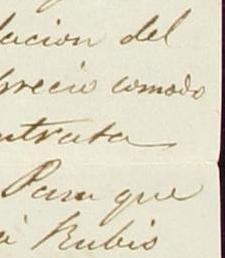 lacion del
precio comodo
ntrata
Para que
a Rubis